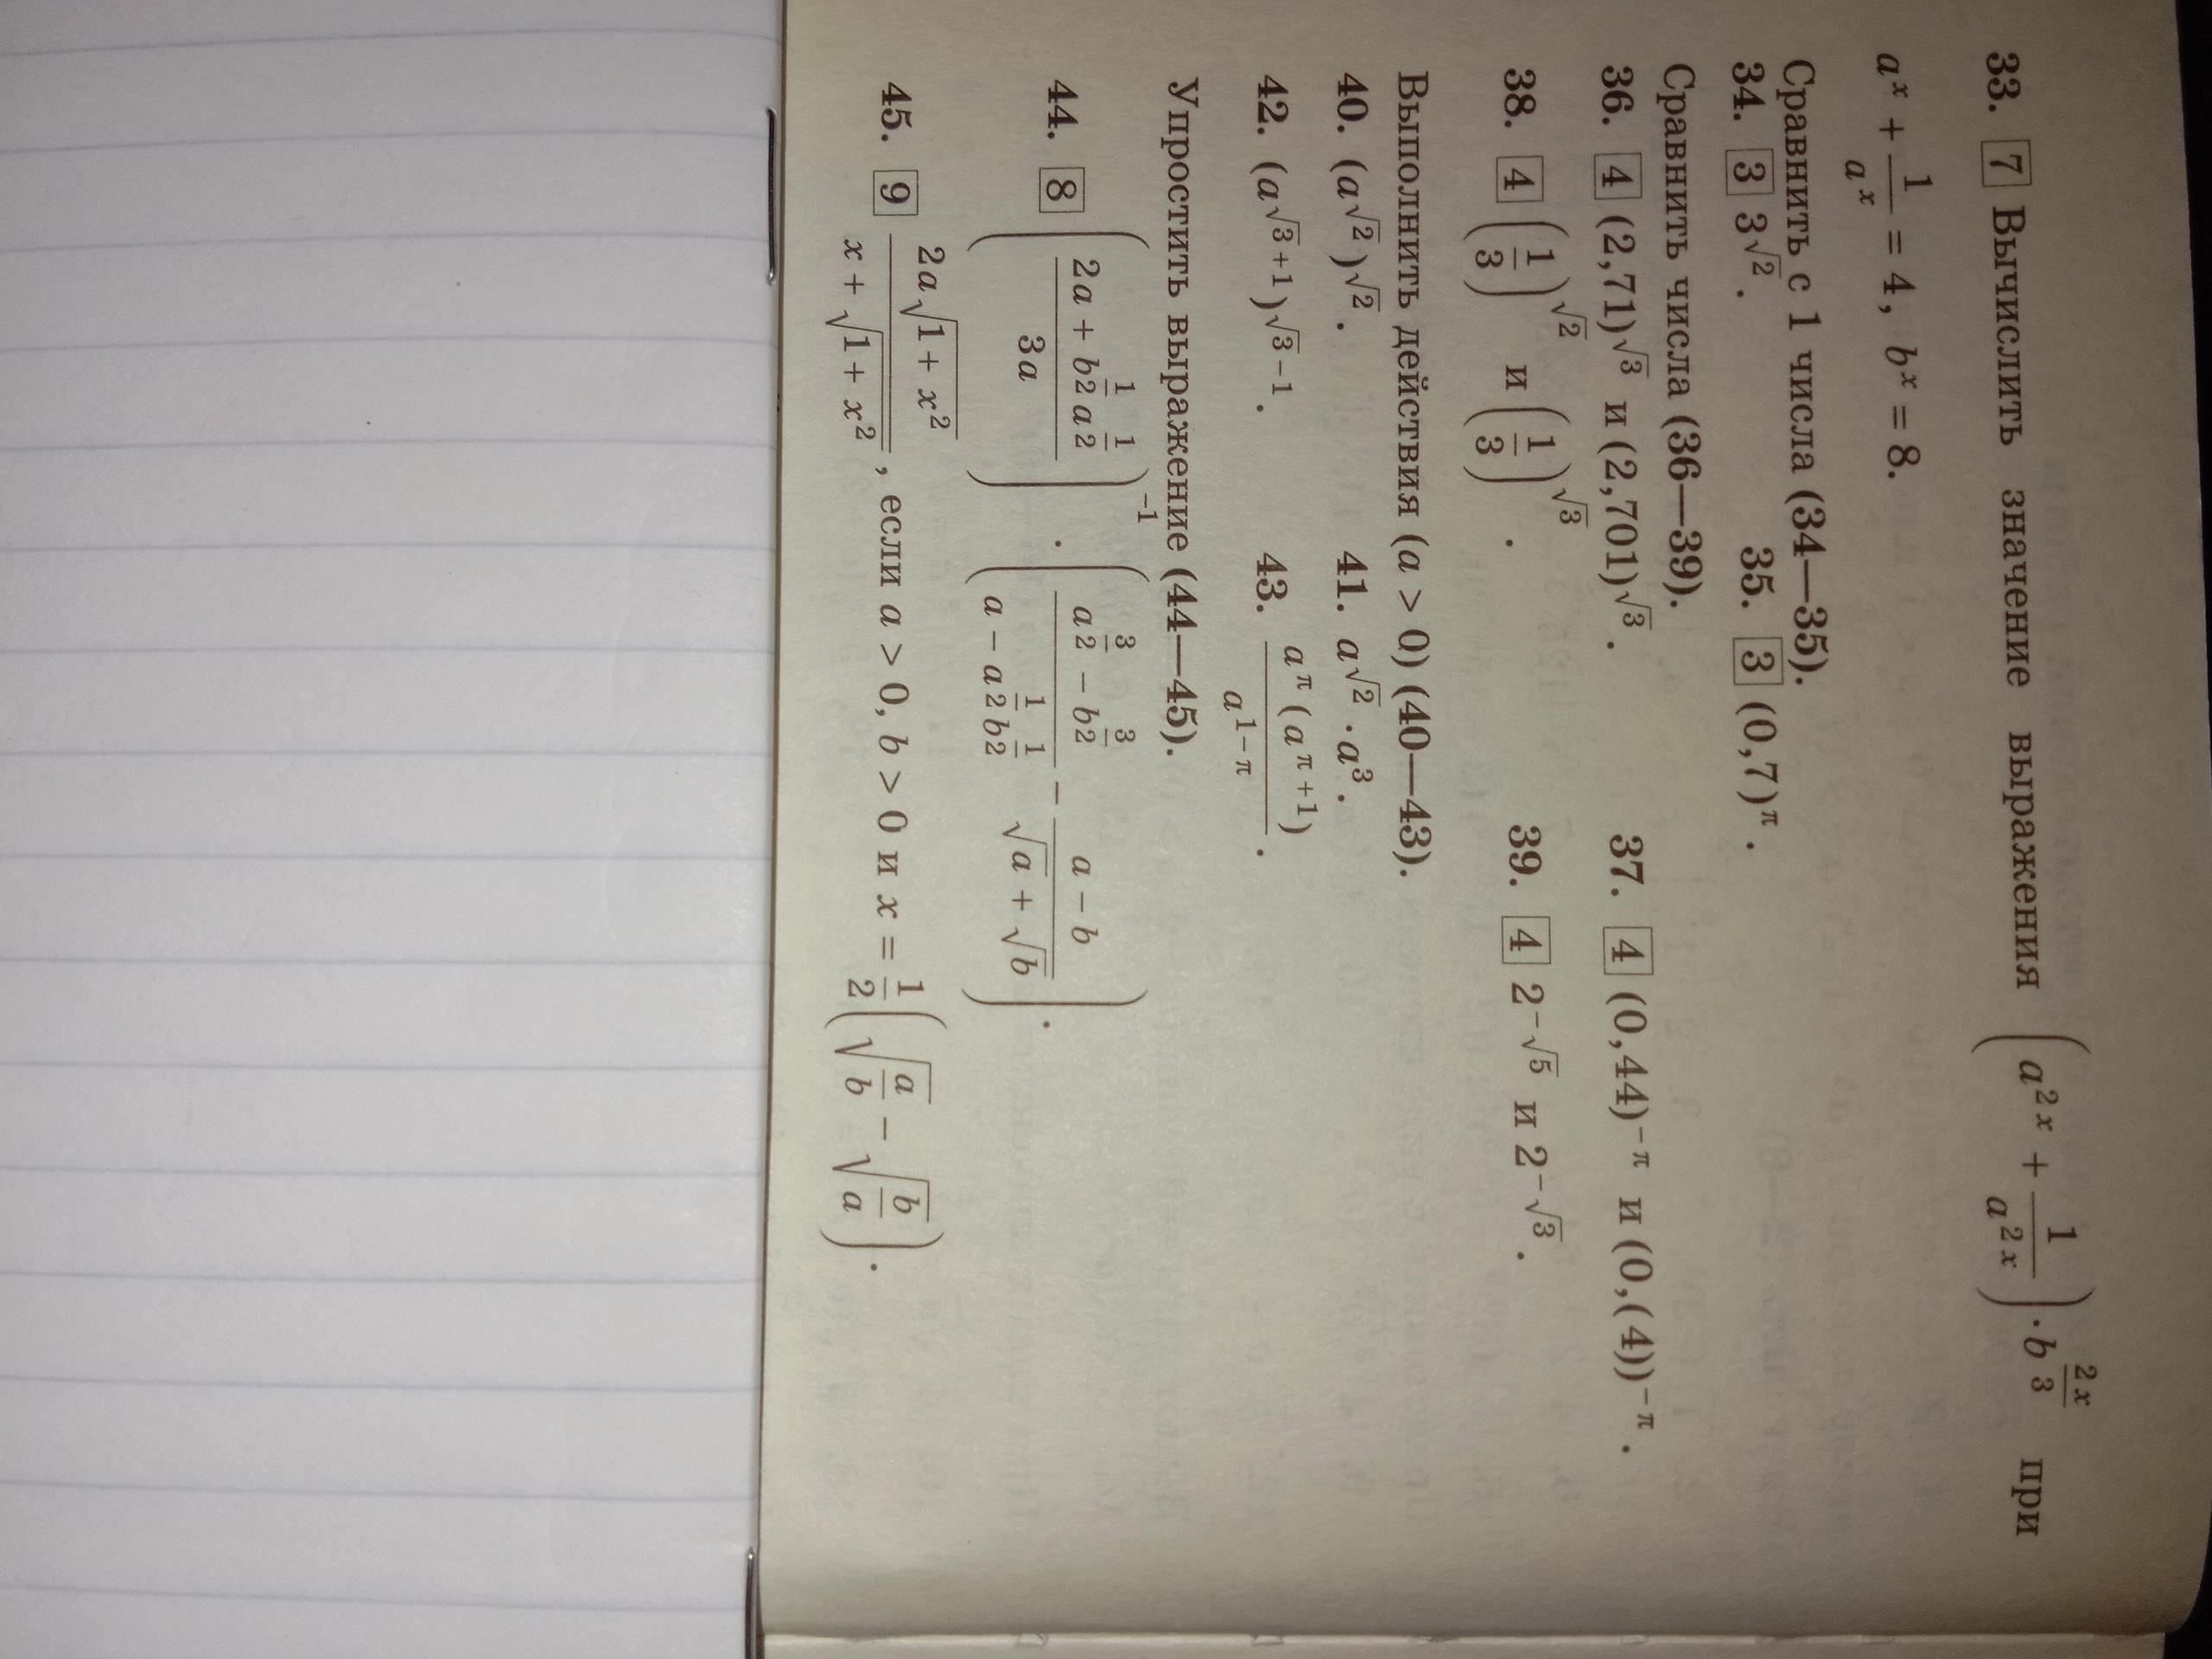 33. 7 Вычислить значение выражения (a^{2x} + \frac{1}{a^{2x}}) · b^{\frac{2x}{3}} при
a^x + \frac{1}{a^x} = 4, b^x = 8.
Сравнить с 1 числа (34—35).
34. 3 3^{√2}. 35. 3 (0,7)^π.
Сравнить числа (36—39).
36. 4 (2,71)^{√3} и (2,701)^{√3}. 37. 4 (0,44)^{−π} и (0,(4))^{−π}.
38. 4 (\frac{1}{3})^{√2} и (\frac{1}{3})^{√3}. 39. 4 2^{−√5} и 2^{−√3}.
Выполнить действия (a > 0) (40—43).
40. (a^{√2})^{√2}. 41. a^{√2} · a^3.
42. (a^{√3+1})^{√3−1}. 43. \frac{a^π(a^{π+1})}{a^{1−π}}.
Упростить выражение (44—45).
44. 8 (\frac{2a + b^{\frac{1}{2}}a^{\frac{1}{2}}}{3a})^{−1} · (\frac{a^{\frac{3}{2}} − b^{\frac{3}{2}}}{a − a^{\frac{1}{2}}b^{\frac{1}{2}}} − \frac{a − b}{√a + √b}).
45. 9 \frac{2a√{1 + x^2}}{x + √{1 + x^2}}, если a > 0, b > 0 и x = \frac{1}{2}(√{\frac{a}{b}} − √{\frac{b}{a}}).